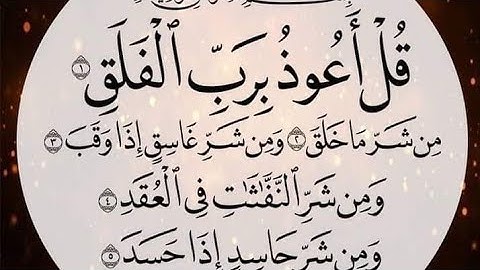 قُلْ أَعُوذُ بِرَبِّ ٱلْفَلَقِ ١
مِن شَرِّ مَا خَلَقَ ٢ وَمِن شَرِّ غَاسِقٍ إِذَا وَقَبَ ٣
وَمِن شَرِّ ٱلنَّفَّٰثَٰتِ فِى ٱلْعُقَدِ ٤
وَمِن شَرِّ حَاسِدٍ إِذَا حَسَدَ ٥